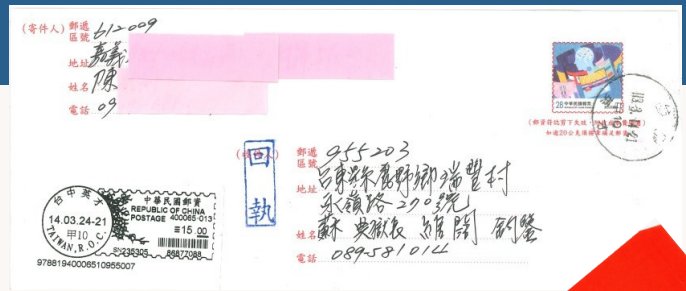 (寄件人) 郵遞區號 612009
地址 嘉義
姓名 陳
電話 09
28 中華民國郵票
回執
郵遞區號 955203
地址 台東縣鹿野鄉瑞豐村
永嶺路270號
姓名 蘇 典獄長 維闊 鈞鑒
電話 089-581014
台中英才
14.03.24-21
甲10
TAIWAN, R.O.C.
中華民國郵資
REPUBLIC OF CHINA
POSTAGE 400065-013
15.00
SN235305 86877088
97881940006510955007